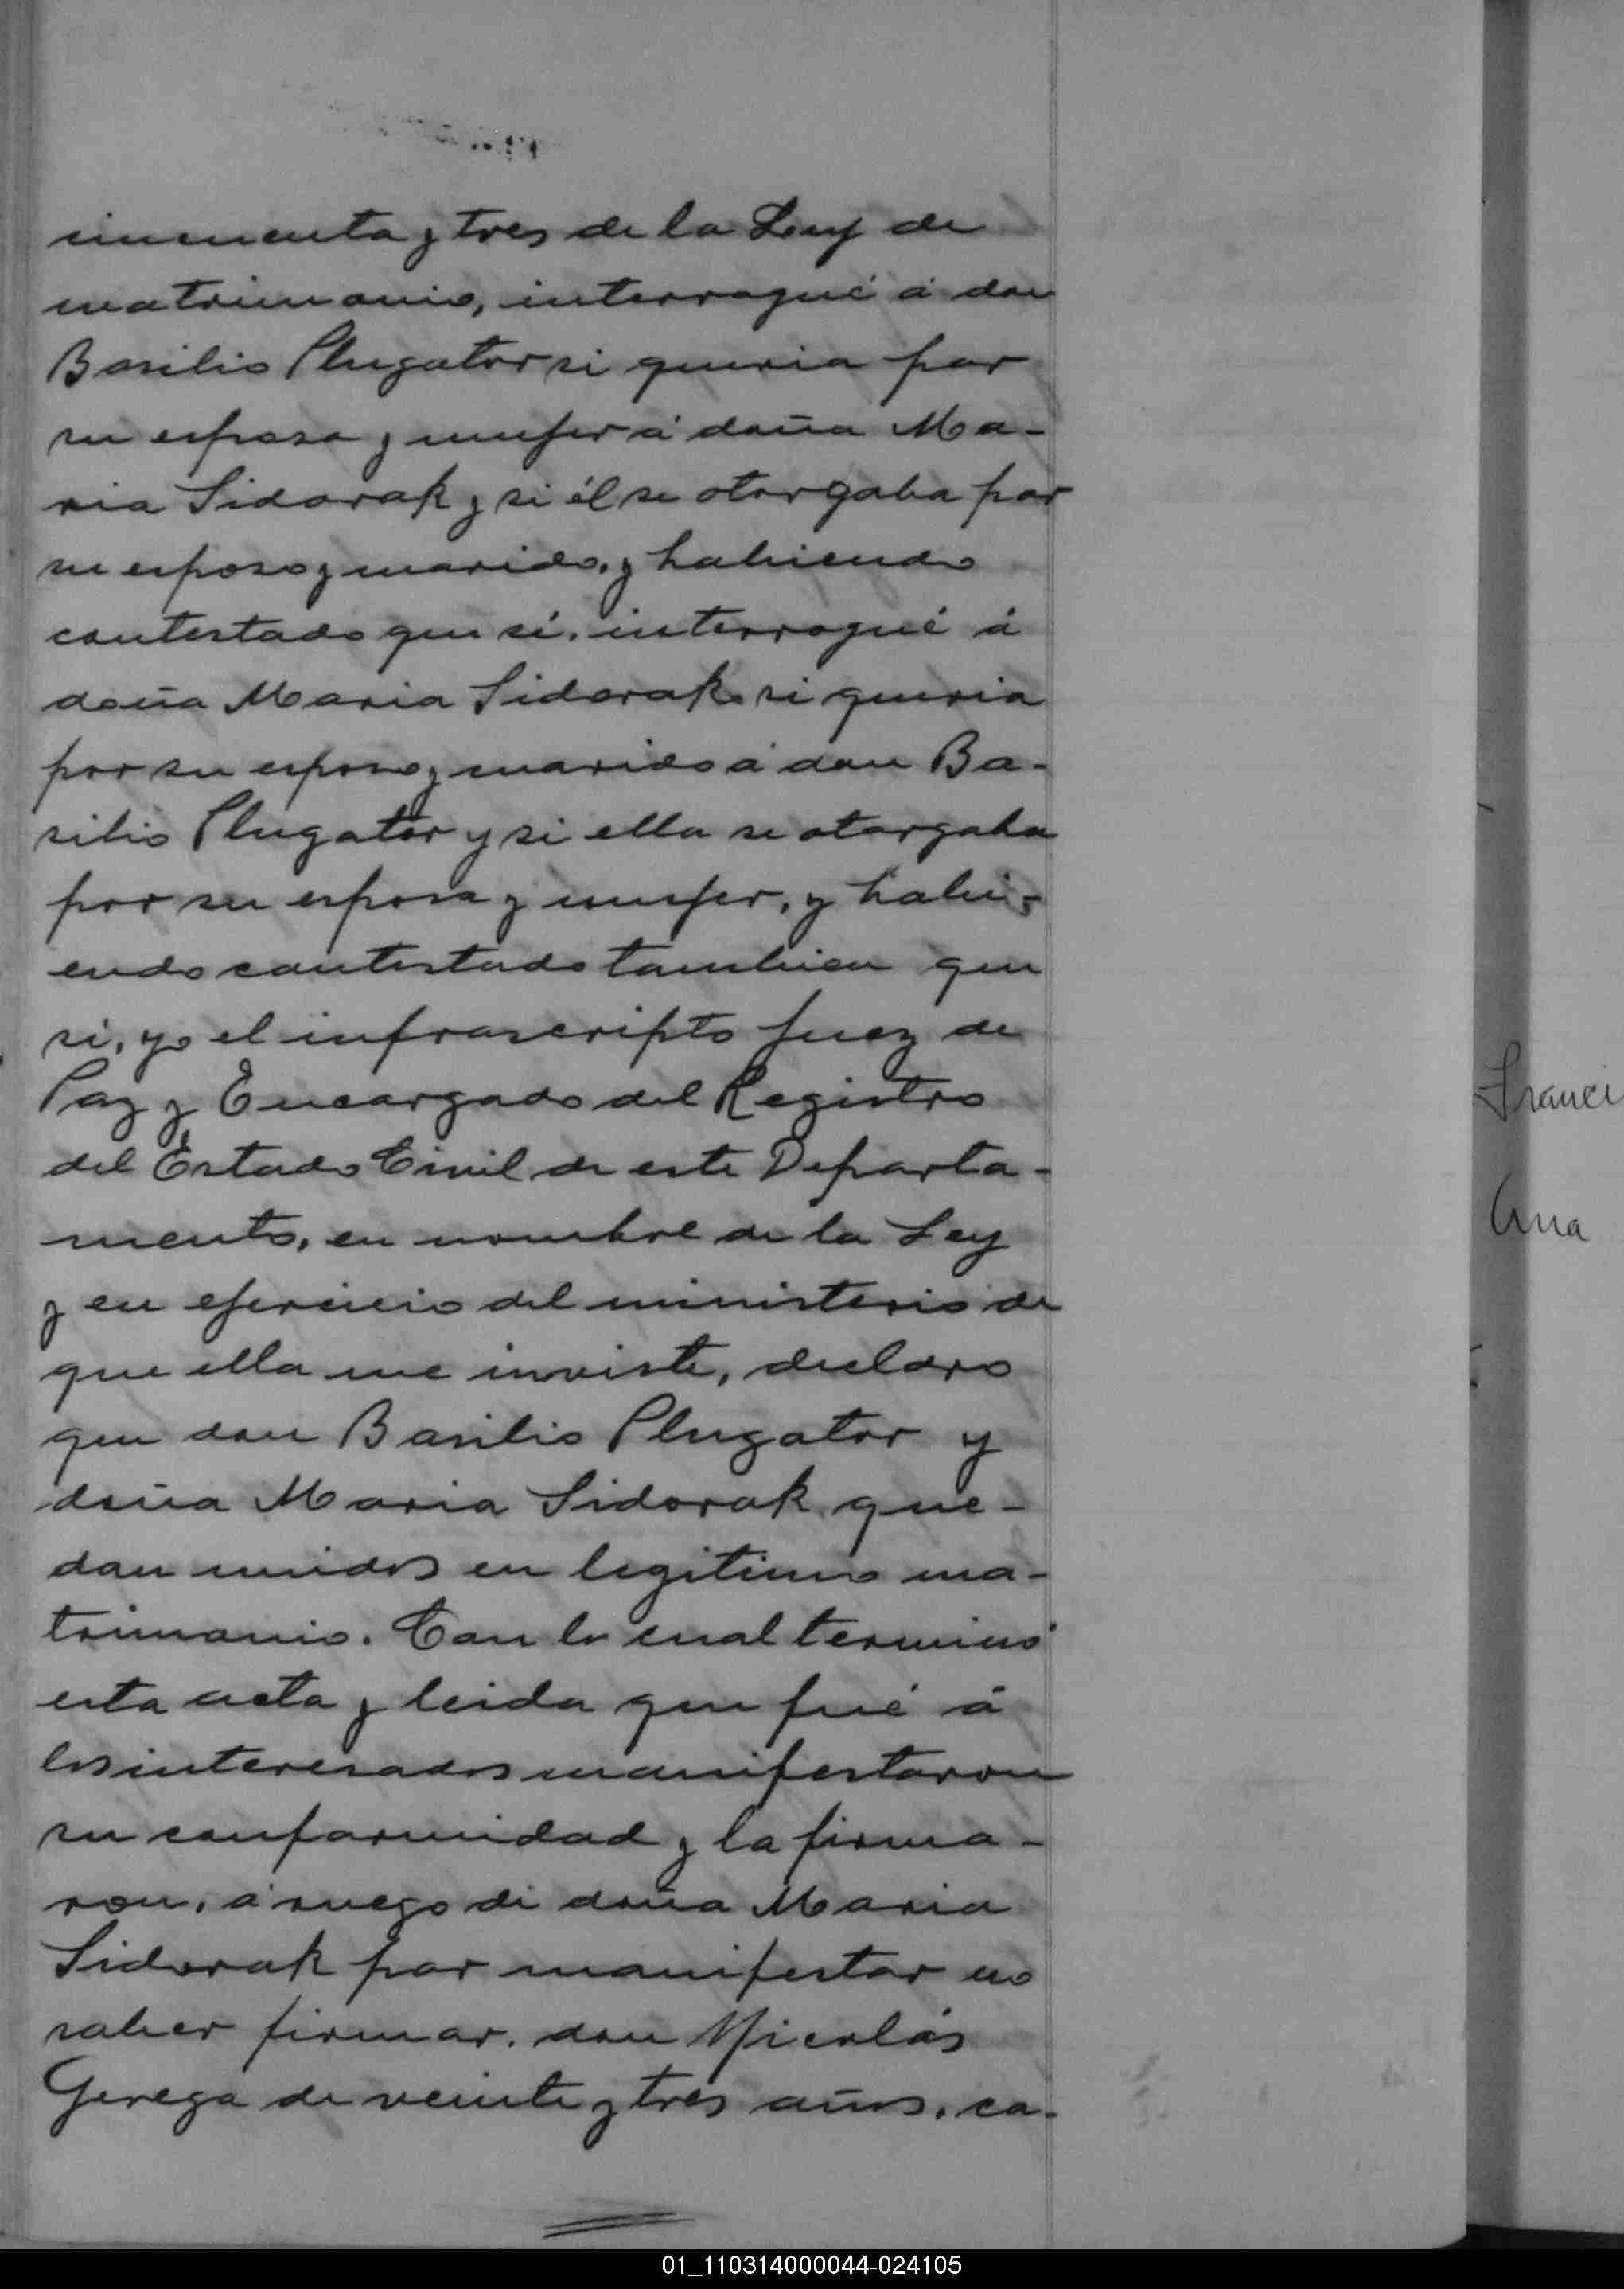 cincuenta y tres de la Ley de
matrimonio, interrogué á don
Basilio Plugator si queria por
su esposa y mujer á doña Ma-
ria Sidorak y si él se otorgaba por
su esposo y marido, y habiendo
contestado que sí, interrogué á
doña Maria Sidorak si queria
por su esposo y marido á don Ba-
silio Plugator y si ella se otorgaba
por su esposa y mujer, y habi-
endo contestado tambien que
si, yo el infrascripto Juez de
Paz y Encargado del Registro
del Estado Civil de este Departa-
mento, en nombre de la Ley
y en ejercicio del ministerio de
que ella me inviste, declaro
que don Basilio Plugator y
doña Maria Sidorak que-
dan unidos en legitimo ma-
trimonio. Con lo cual terminó
esta acta y leida que fué á
los interesados manifestaron
su conformidad y la firma-
ron, á ruego di doña Maria
Sidorak por manifestar no
saber firmar, don Nicolás
Gerega de veinte y tres años, ca-
Franci
Ana
01_110314000044-024105